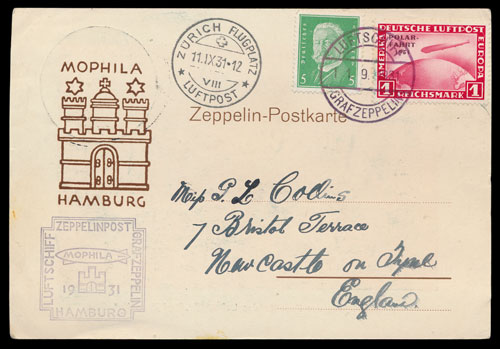 MOPHILA
HAMBURG
ZÜRICH FLUGPLATZ
11.IX.31-12
VIII
LUFTPOST
5 5
LUFTSCHIFF
GRAF ZEPPELIN
DEUTSCHE LUFTPOST
AMERIKA
EUROPA
POLAR-
FAHRT
1931
1 REICHSMARK 1
Zeppelin-Postkarte
Miss P. L. Collins
7 Bristol Terrace
Newcastle on Tyne
England
ZEPPELINPOST
LUFTSCHIFF
GRAF ZEPPELIN
MOPHILA
19 31
HAMBURG